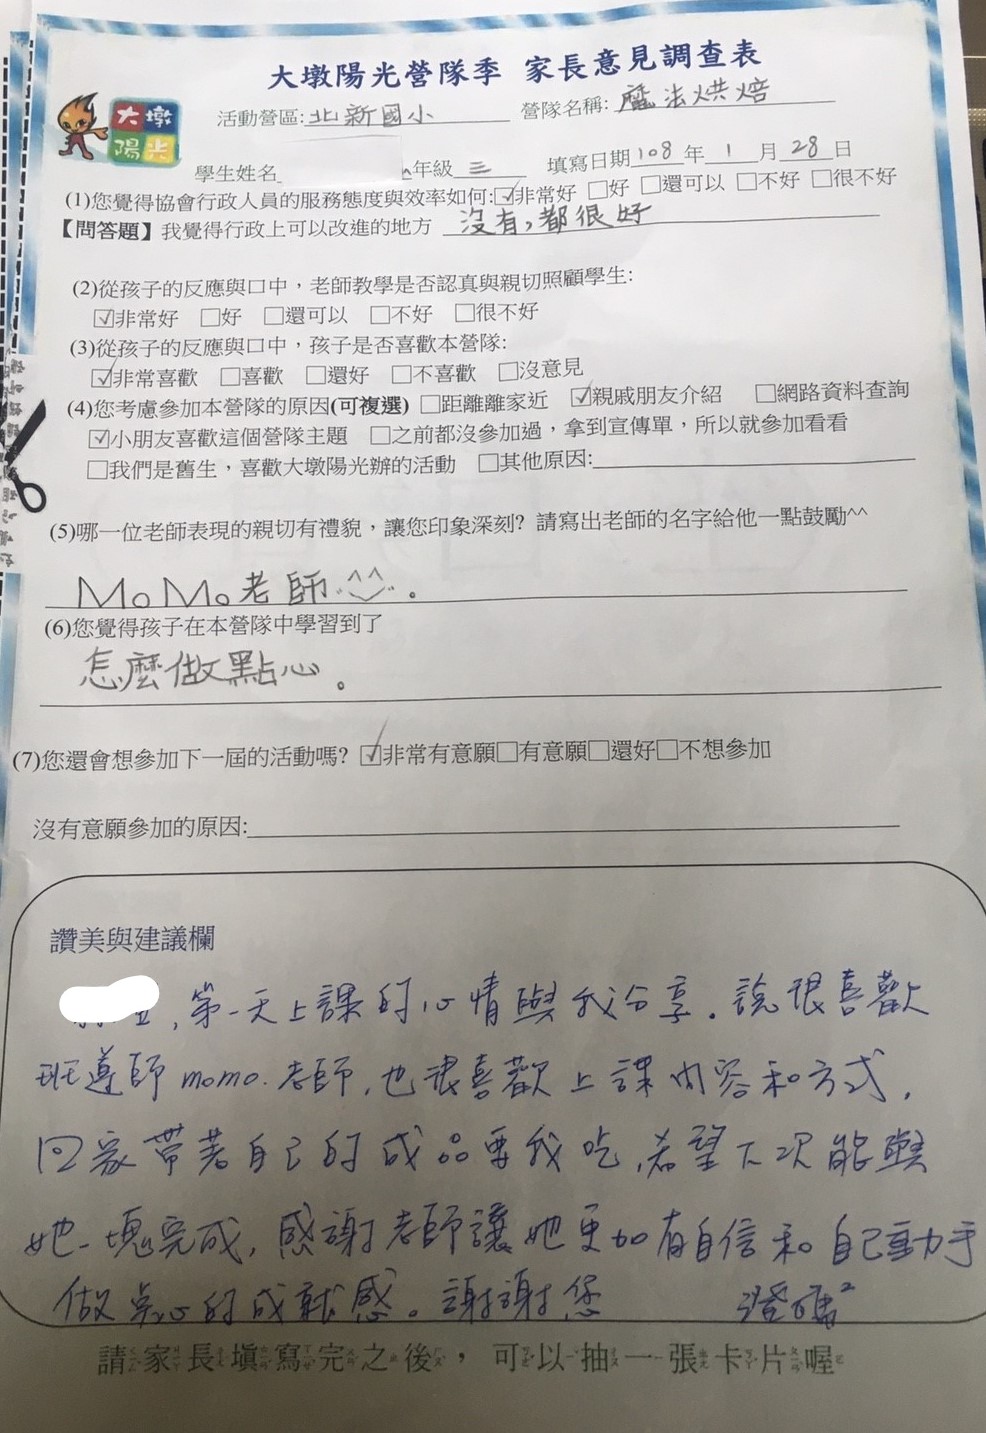 大墩陽光營隊季 家長意見調查表
大墩
陽光
活動營區:北新國小 營隊名稱:魔法烘焙
學生姓名 年級 三 填寫日期108年1月28日
(1)您覺得協會行政人員的服務態度與效率如何:☑非常好 □好 □還可以 □不好 □很不好
【問答題】我覺得行政上可以改進的地方 沒有,都很好
(2)從孩子的反應與口中,老師教學是否認真與親切照顧學生:
☑非常好 □好 □還可以 □不好 □很不好
(3)從孩子的反應與口中,孩子是否喜歡本營隊:
☑非常喜歡 □喜歡 □還好 □不喜歡 □沒意見
(4)您考慮參加本營隊的原因(可複選) □距離離家近 ☑親戚朋友介紹 □網路資料查詢
☑小朋友喜歡這個營隊主題 □之前都沒參加過,拿到宣傳單,所以就參加看看
□我們是舊生,喜歡大墩陽光辦的活動 □其他原因:
(5)哪一位老師表現的親切有禮貌,讓您印象深刻? 請寫出老師的名字給他一點鼓勵^^
MoMo老師 ^^。
(6)您覺得孩子在本營隊中學習到了
怎麼做點心。
(7)您還會想參加下一屆的活動嗎? ☑非常有意願□有意願□還好□不想參加
沒有意願參加的原因:
讚美與建議欄
,第一天上課的心情與我分享.說很喜歡
班導師momo.老師,也很喜歡上課內容和方式,
回家帶著自己的成品要我吃,希望下次能與
她一塊完成,感謝老師讓她更加有自信和自己動手
做點心的成就感。謝謝您
請家長填寫完之後,可以抽一張卡片喔